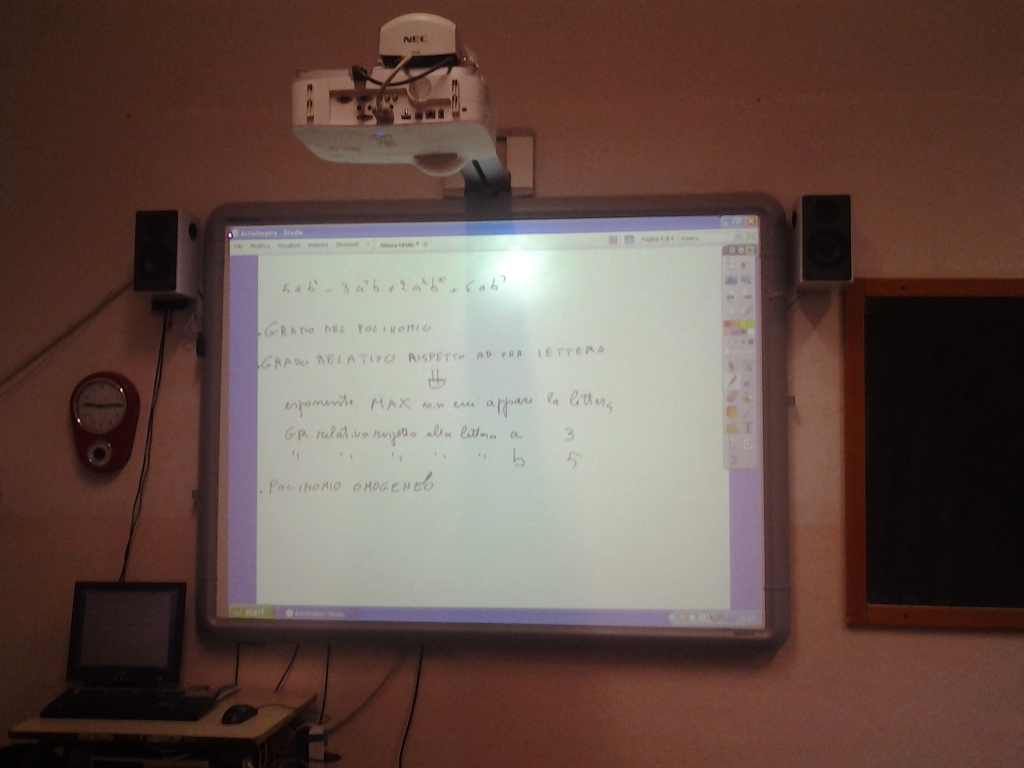 NEC
ActivInspire - Studio
File Modifica Visualizza Inserisci Strumenti
5ab² - 3a³b + 2a²b⁵ + 6ab³
. GRADO DEL POLINOMIO
. GRADO RELATIVO RISPETTO AD UNA LETTERA
esponente MAX con cui appare la lettera
GR. relativo rispetto alla lettera a 3
" " " " " b 5
. POLINOMIO OMOGENEO
start ActivInspire - Studio